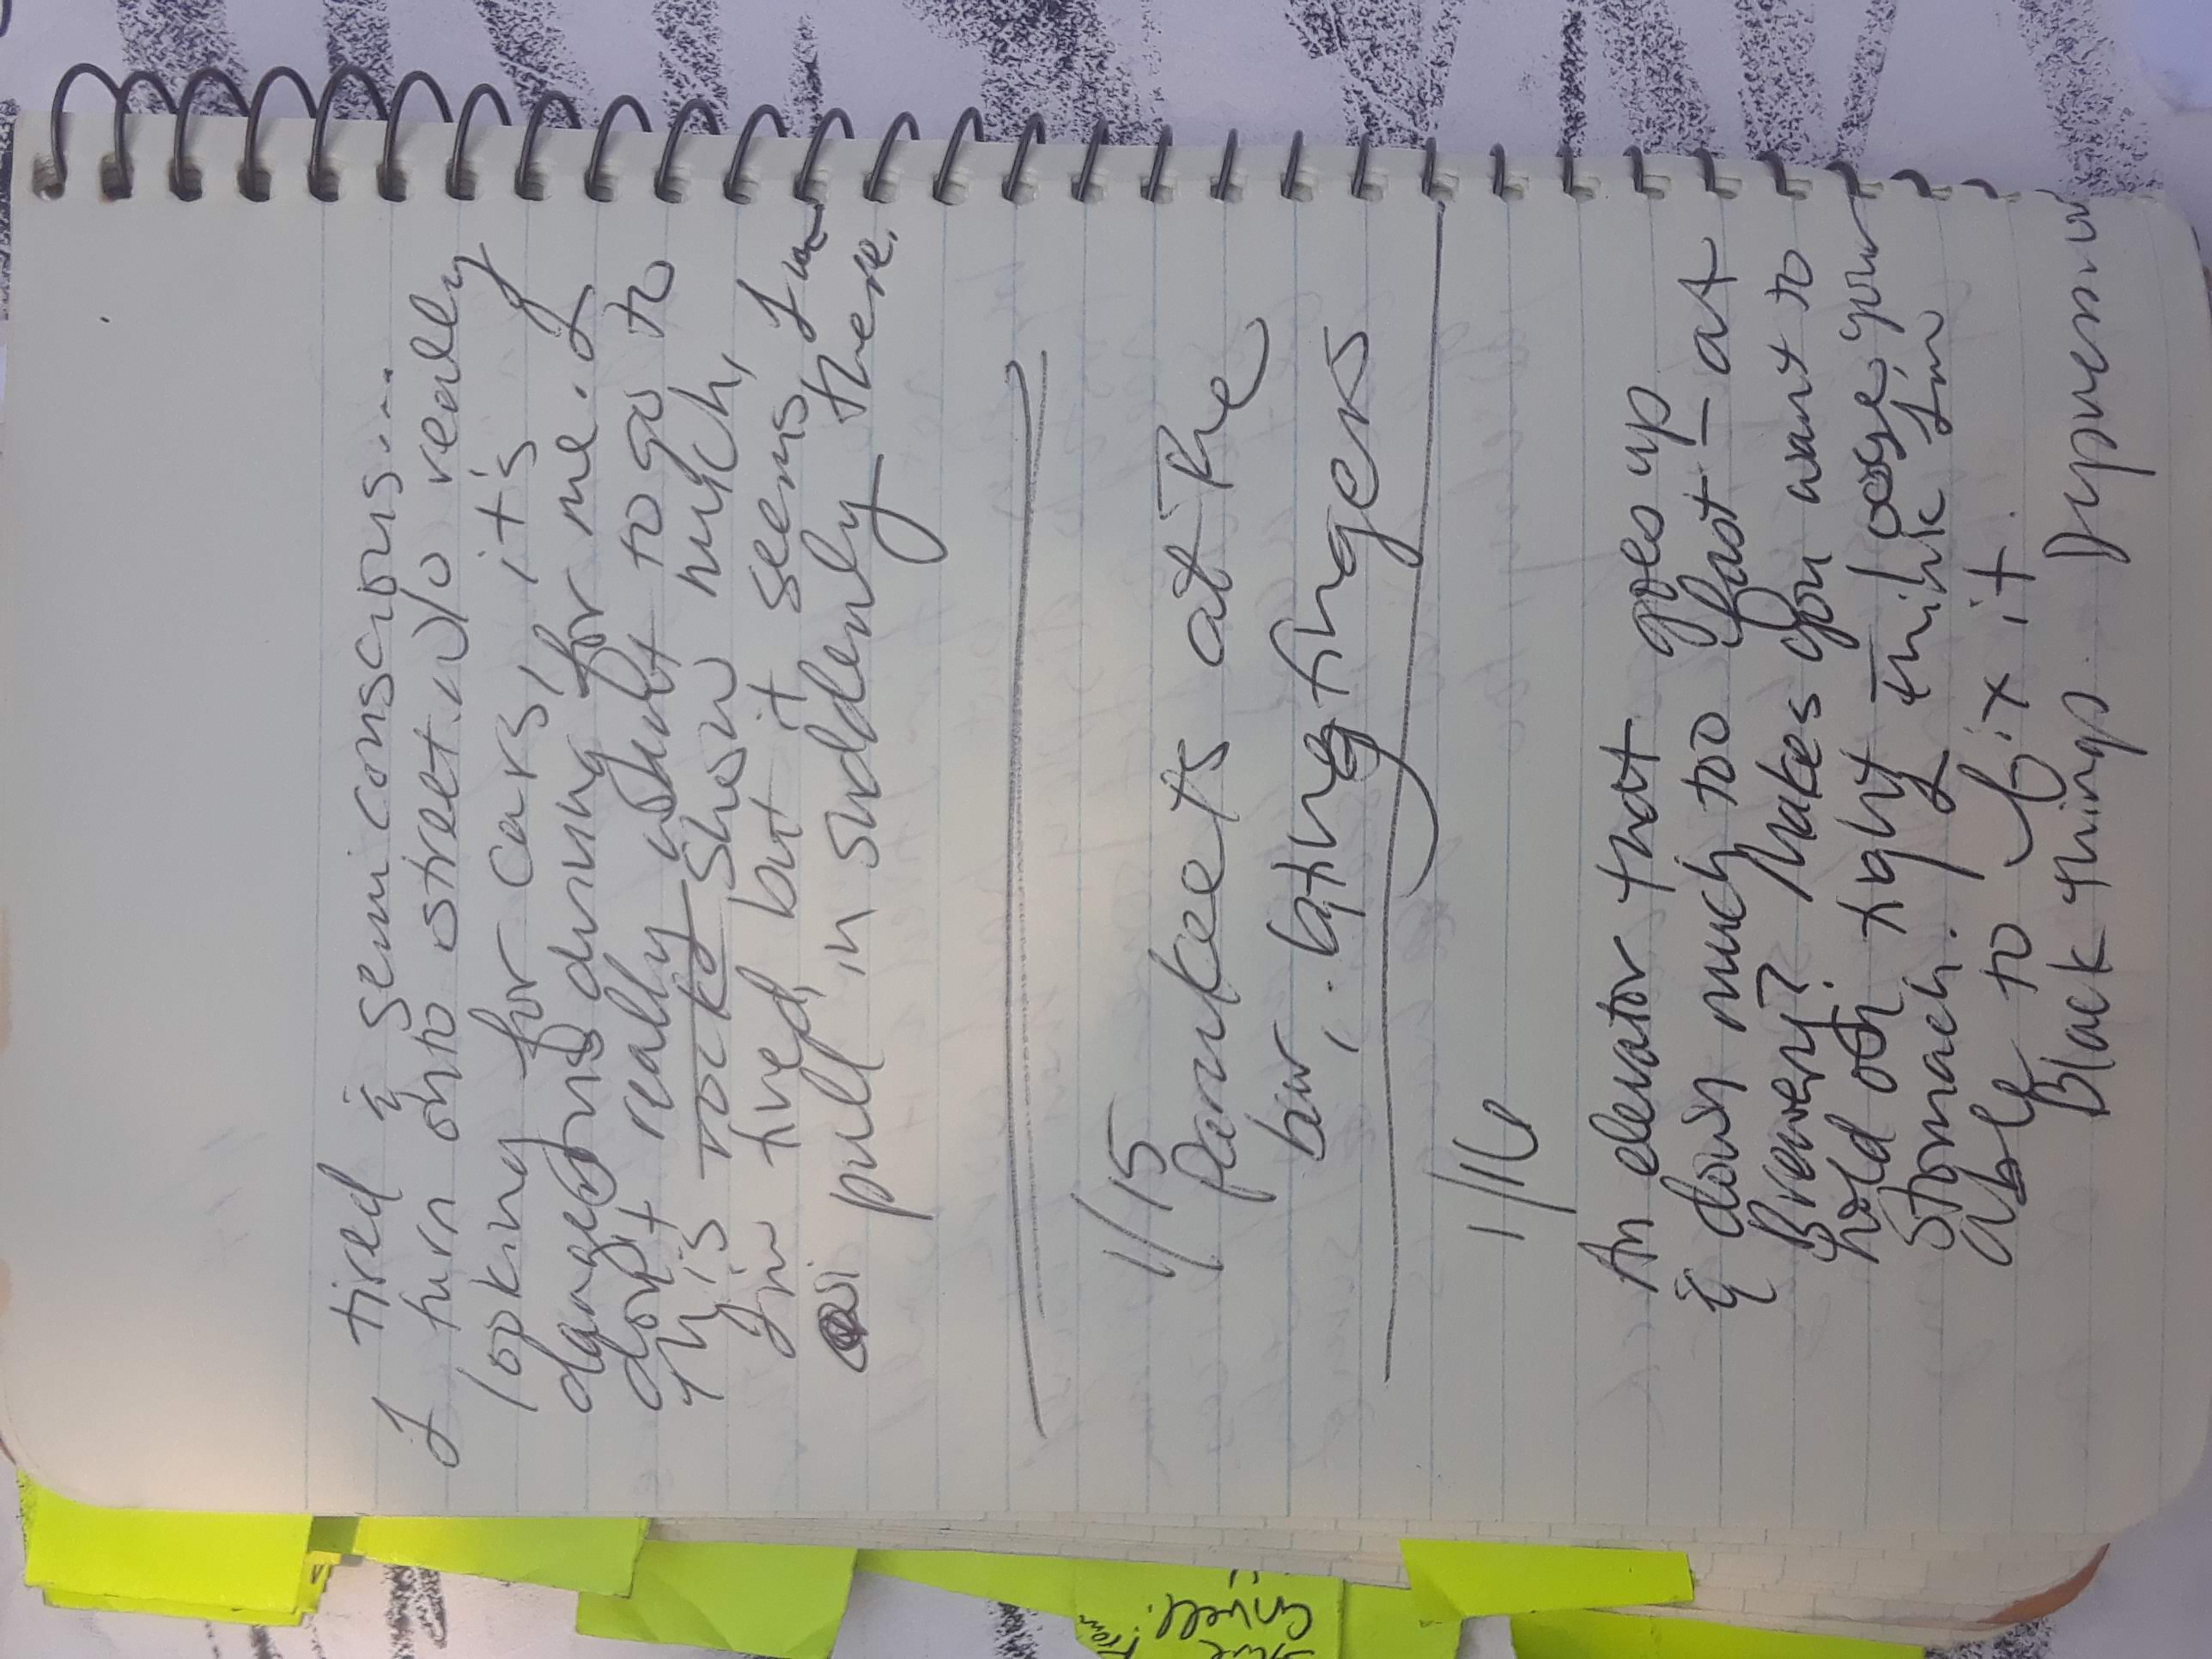 tired & semiconscious...
I turn onto street w/o really
looking for cars, it's
dangerous driving for me. I
don't really want to go to
this rocky show much,
I'm tired, but it seems, I'm
pull in suddenly there.
1/15
parakeets at the
bar, biting fingers
1/16
An elevator that goes up
& down much too fast - at
Brewery? Makes you want to
hold on tight think lose your
stomach. I'm
able to fix it.
Black things.
Envell.